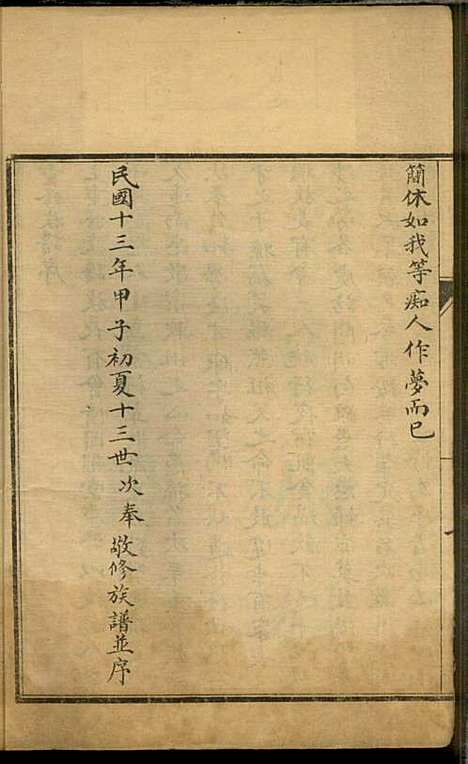 簡休如我等痴人作夢而已
民國十三年甲子初夏十三世次奉敬修族譜並序